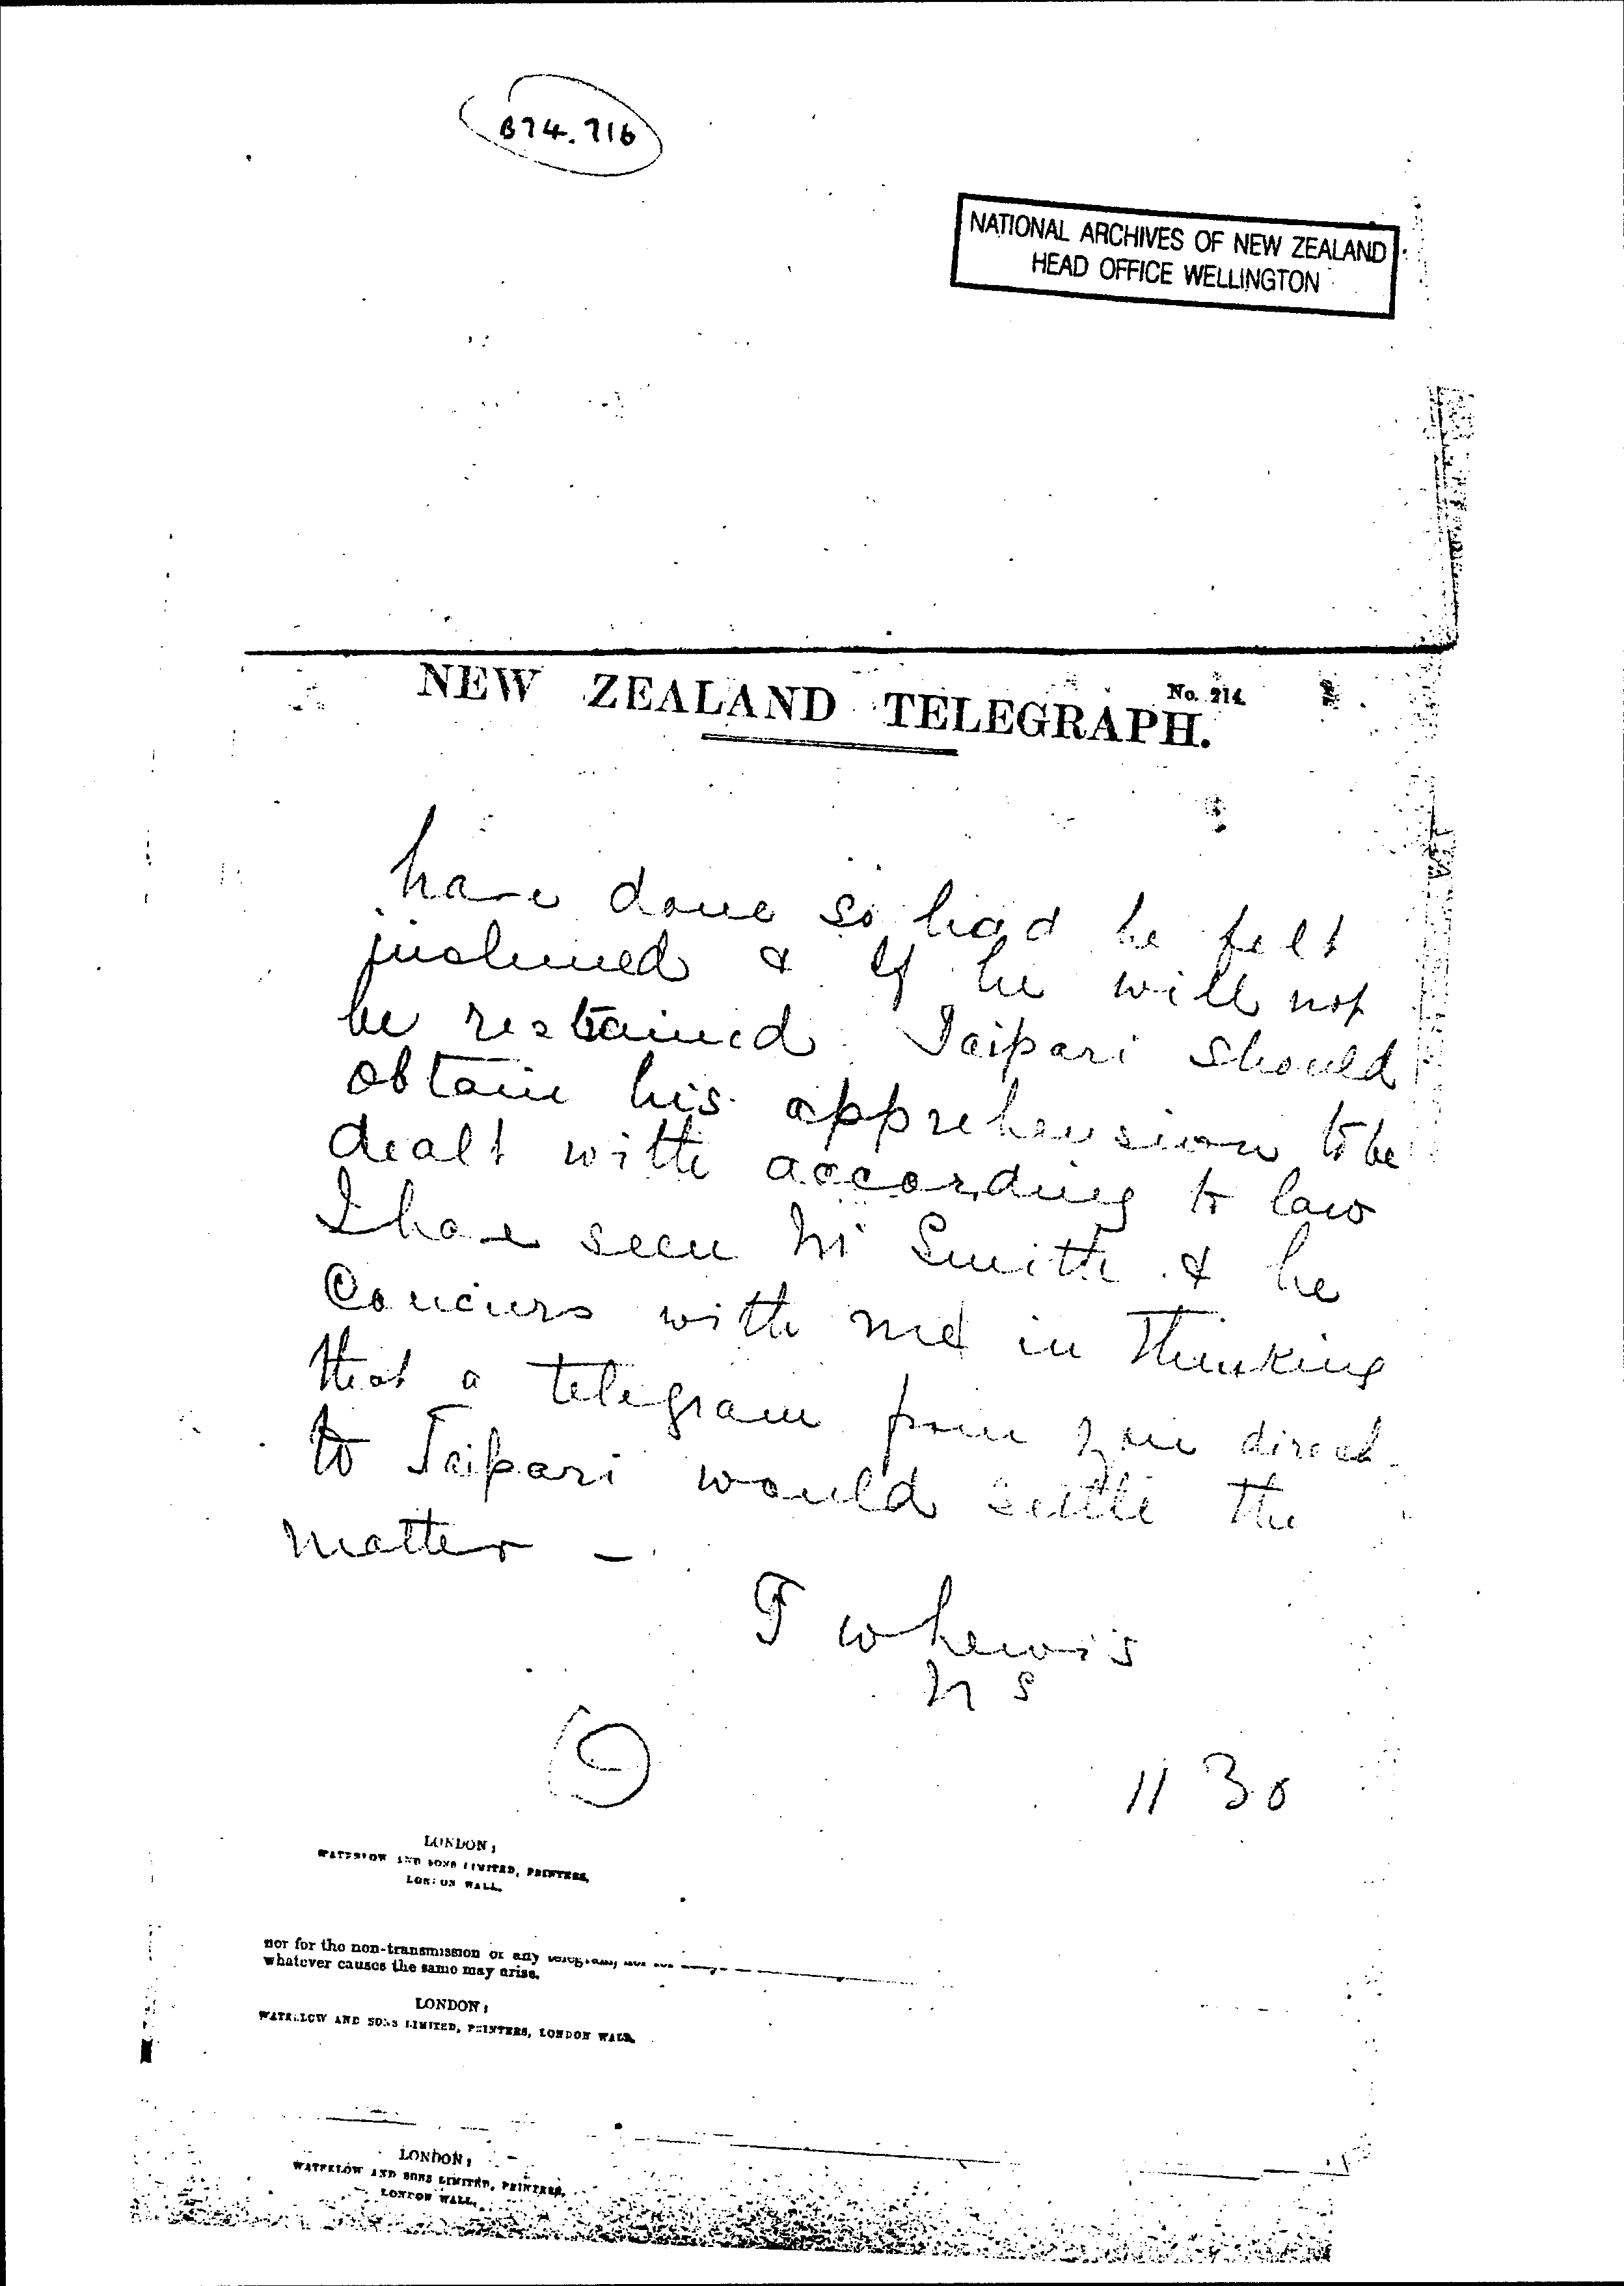 B74.716
NATIONAL ARCHIVES OF NEW ZEALAND
HEAD OFFICE WELLINGTON
NEW ZEALAND TELEGRAPH.
No. 214
have done so had he felt
justified & if he will not
be restrained Taipari should
obtain his apprehension to be
dealt with according to law
I have seen Mr Smith & he
concurs with me in thinking
that a telegram from you direct
to Taipari would settle the
matter —
T W Lewis
11 30
LONDON;
WATERLOW AND SONS LIMITED, PRINTERS,
LONDON WALL.
nor for the non-transmission or any telegram, nor for
whatever causes the same may arise.
LONDON;
WATERLOW AND SONS LIMITED, PRINTERS, LONDON WALL.
LONDON;
WATERLOW AND SONS LIMITED, PRINTERS,
LONDON WALL.